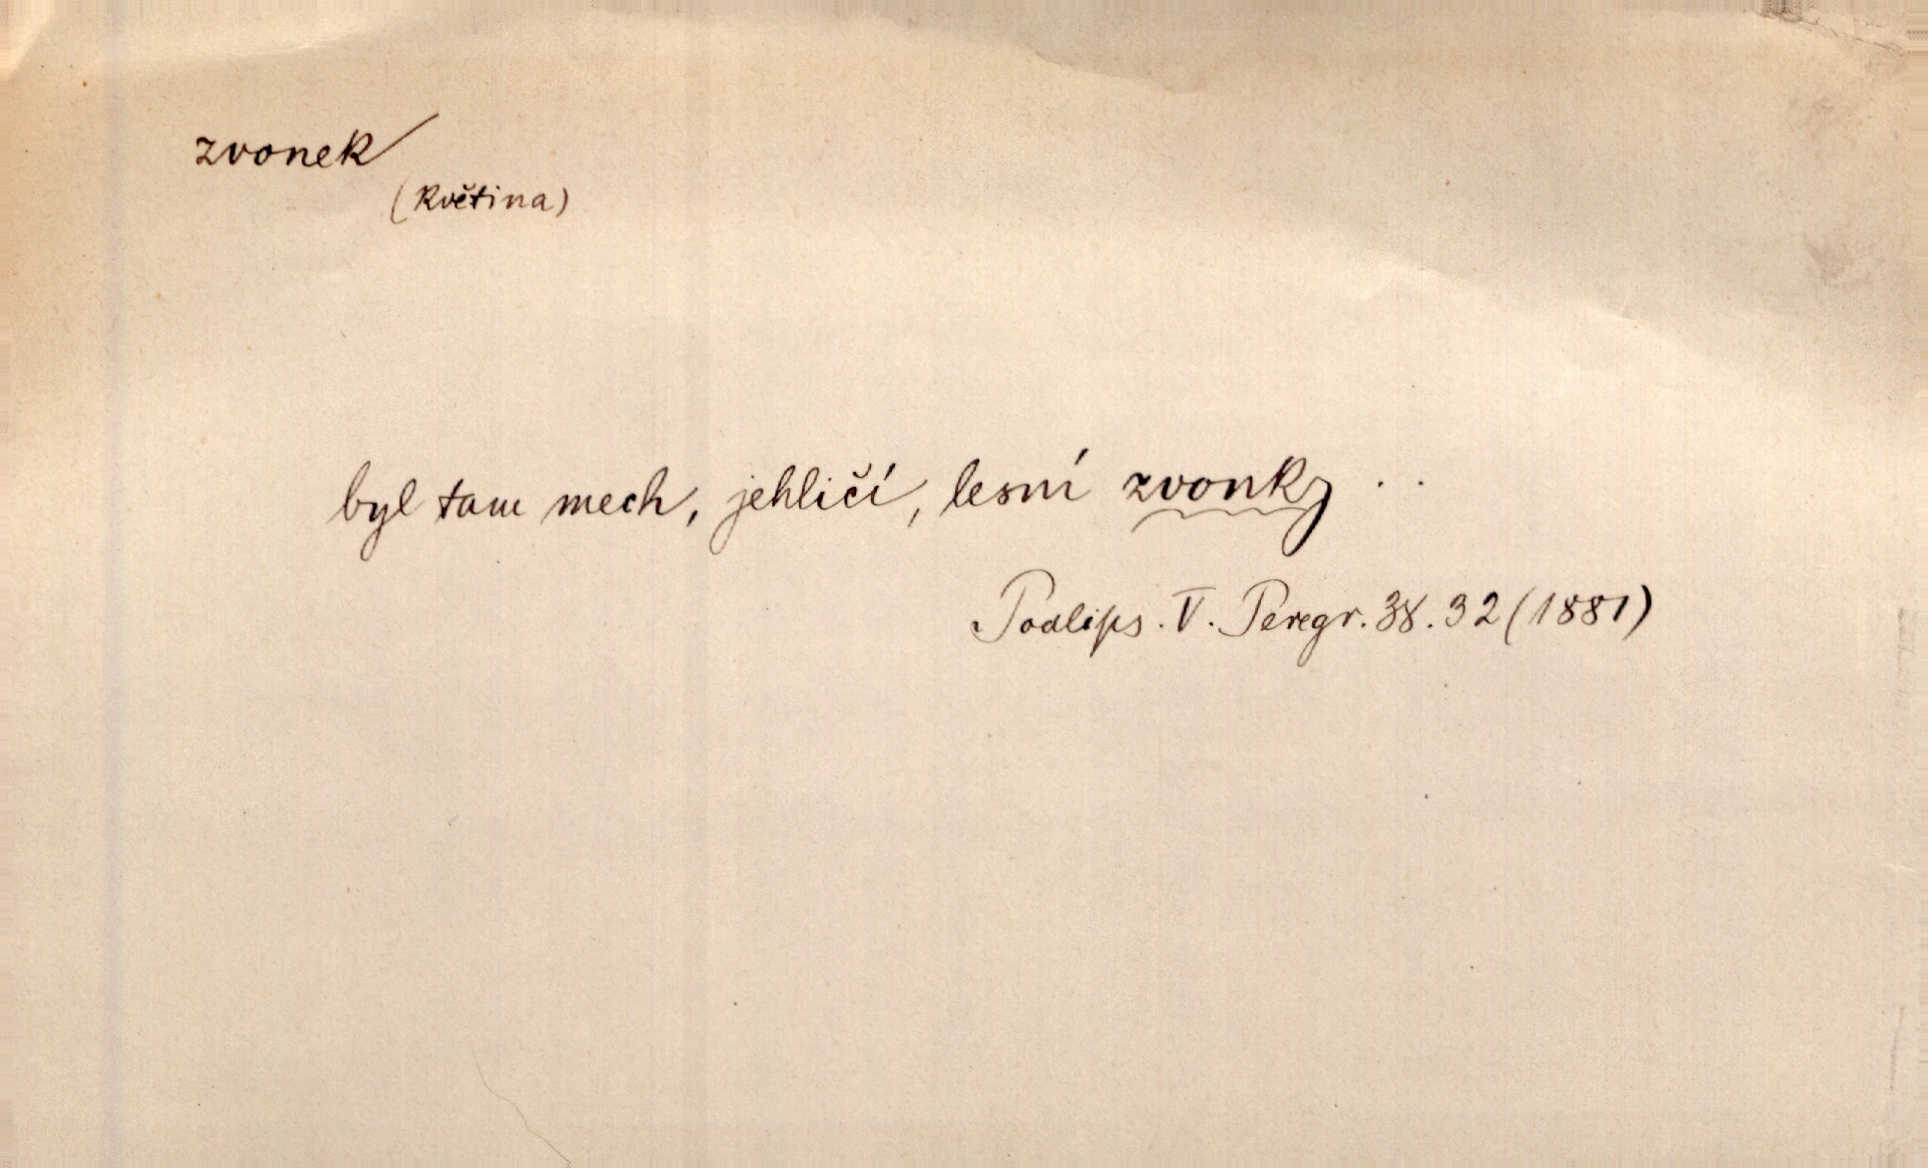 zvonek
(květina)
byl tam mech, jehličí, lesní zvonky . .
Podlips. V. Peregr. 38. 32 (1881)